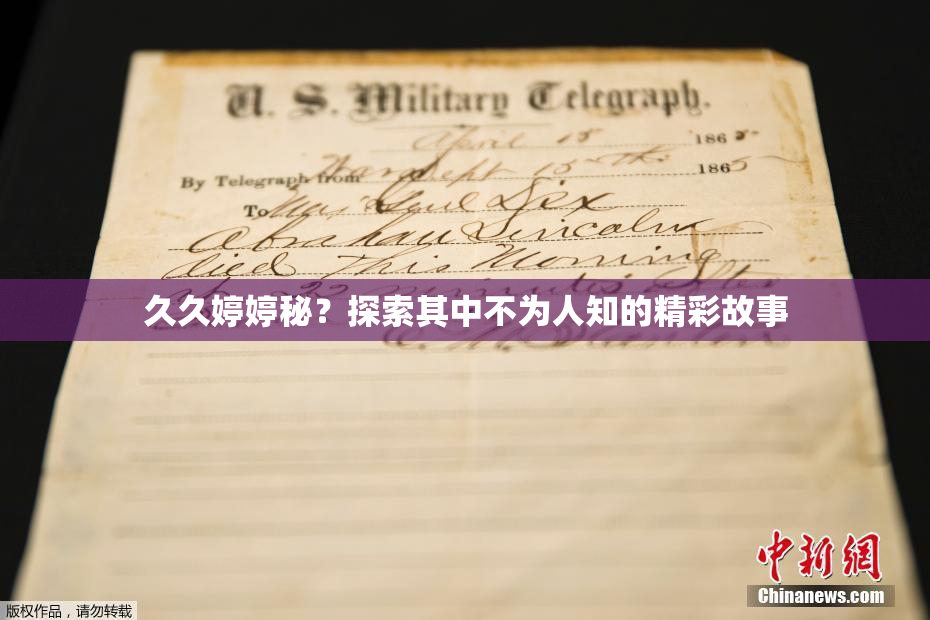 U. S. Military Telegraph.
April 15 1865
By Telegraph from War Dept 15th 1865
To Maj Genl Dix
Abraham Lincoln
died This Morning
22 minutes after
久久婷婷秘？探索其中不为人知的精彩故事
E. M. Stanton
中新网
Chinanews.com
版权作品，请勿转载